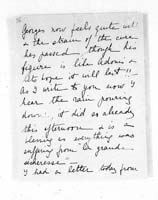 Georges now feels quite well
& the strain of the cure
has passed, though his
figure is like Adonis &
let hope it will last!!
As I write to you now I
hear the rain pouring
down; it did so already
this afternoon & is a
blessing as everything was
suffering from la grande
sécheresse —
I had a letter today from